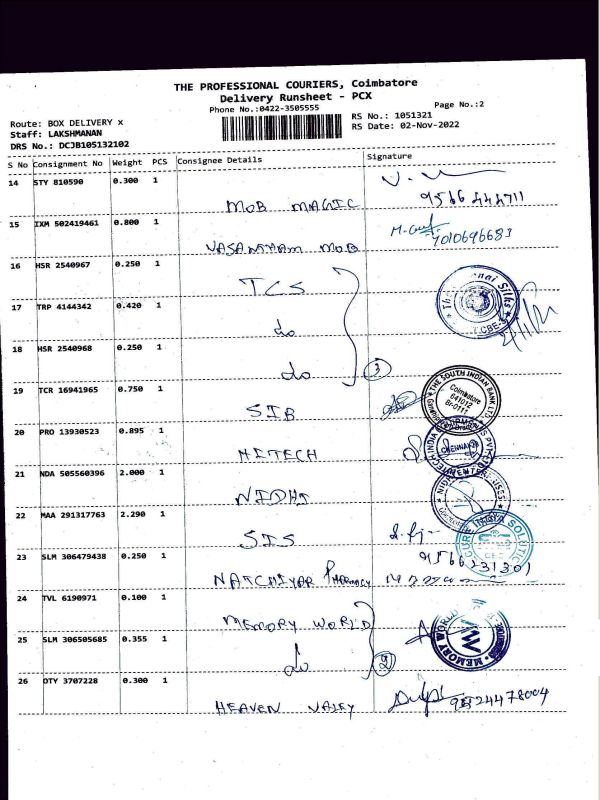 THE PROFESSIONAL COURIERS, Coimbatore
Delivery Runsheet - PCX
Phone No.:0422-3505555
Page No.:2
Route: BOX DELIVERY x
RS No.: 1051321
Staff: LAKSHMANAN
RS Date: 02-Nov-2022
DRS No.: DCJB105132102
S No Consignment No Weight PCS Consignee Details Signature
14 STY 810590 0.300 1 MOB MAGIC 9566444711
15 IXM 502419461 0.800 1 VASANTHAM MOB 7010696683
16 HSR 2540967 0.250 1 TCS
17 TRP 4144342 0.420 1 do
18 HSR 2540968 0.250 1 do 3
19 TCR 16941965 0.750 1 SIB THE SOUTH INDIAN BANK LTD. Coimbatore 641012 Br-0111
20 PRO 13930523 0.895 1 HITECH CHENNAI
21 NDA 505560396 2.000 1 NIDHI
22 MAA 291317763 2.290 1 SIS
23 SLM 306479438 0.250 1 NATCHIYAR PHARMACY
24 TVL 6190971 0.100 1 MEMORY WORLD
25 SLM 306505685 0.355 1 do 2 MEMORY WORLD
26 OTY 3707228 0.300 1 HEAVEN VALEY